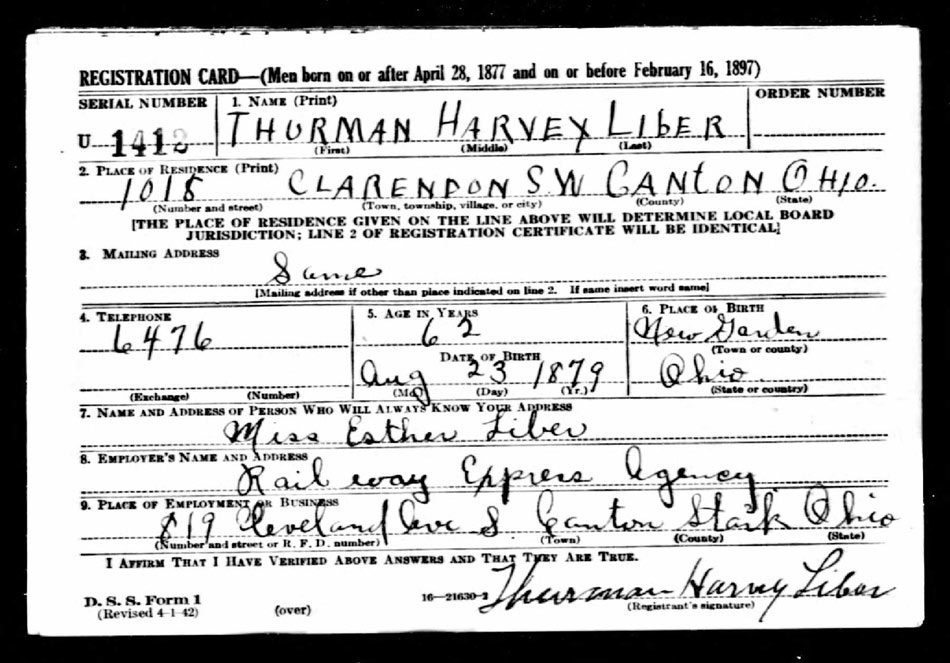 REGISTRATION CARD—(Men born on or after April 28, 1877 and on or before February 16, 1897)
SERIAL NUMBER
1. NAME (Print)
ORDER NUMBER
U 1412
THURMAN HARVEY LIBER
(First) (Middle) (Last)
2. PLACE OF RESIDENCE (Print)
1018 CLARENDON S.W CANTON OHIO.
(Number and street) (Town, township, village, or city) (County) (State)
[THE PLACE OF RESIDENCE GIVEN ON THE LINE ABOVE WILL DETERMINE LOCAL BOARD
JURISDICTION; LINE 2 OF REGISTRATION CERTIFICATE WILL BE IDENTICAL]
3. MAILING ADDRESS
Same
[Mailing address if other than place indicated on line 2. If same insert word same]
4. TELEPHONE
6476
(Exchange) (Number)
5. AGE IN YEARS
62
DATE OF BIRTH
Aug 23 1879
(Mo.) (Day) (Yr.)
6. PLACE OF BIRTH
New Garden
(Town or county)
Ohio
(State or country)
7. NAME AND ADDRESS OF PERSON WHO WILL ALWAYS KNOW YOUR ADDRESS
Miss Esther Liber
8. EMPLOYER'S NAME AND ADDRESS
Rail way Express Agency
9. PLACE OF EMPLOYMENT OR BUSINESS
819 Cleveland Ave S. Canton Stark Ohio
(Number and street or R. F. D. number) (Town) (County) (State)
I AFFIRM THAT I HAVE VERIFIED ABOVE ANSWERS AND THAT THEY ARE TRUE.
D. S. S. Form 1
(Revised 4-1-42)
(over)
16—21630-2
Thurman Harvey Liber
(Registrant's signature)